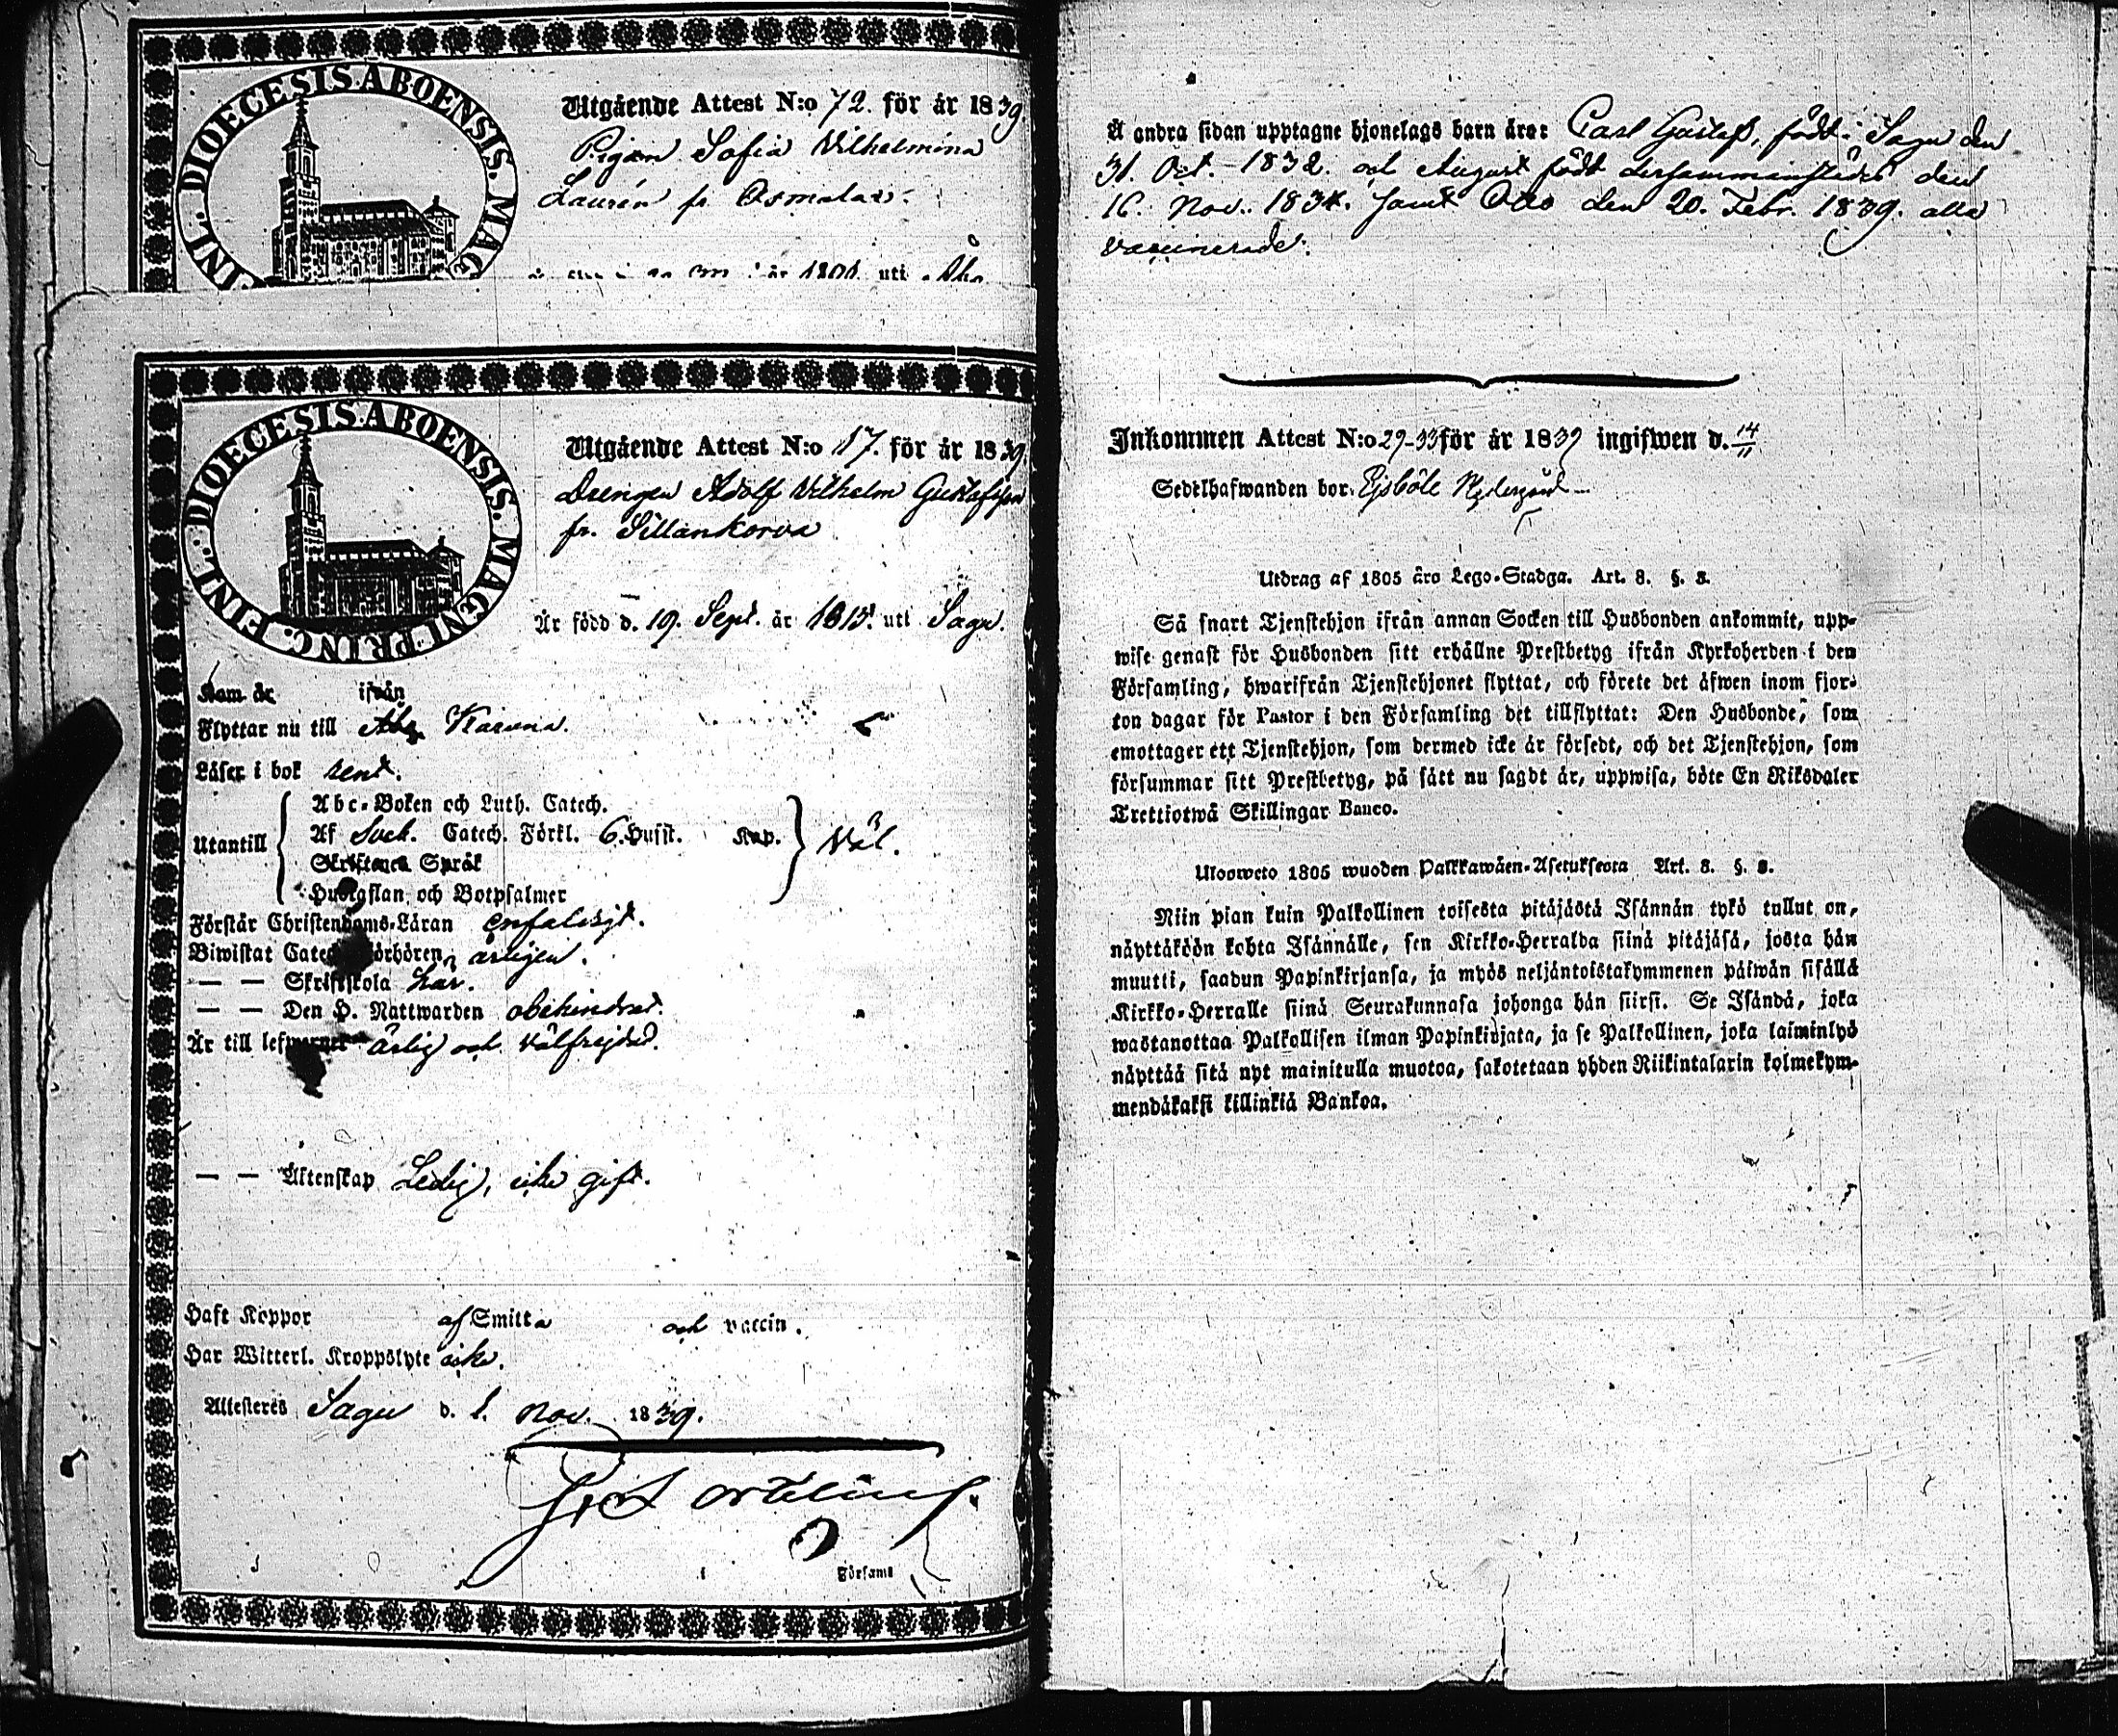 DIOECESIS ABOENSIS. MAG
FINL.
Utgående Attest N:o 72. för år 1839
Pigan Sofia Wilhelmina
Laurén fr
uti Åbo
DIOECESIS ABOENSIS. MAGNI PRINC. FINL.
Utgående Attest N:o 17. för år 1839
Drengen Adolf Wilhelm Gustafsson
fr. Sillankorva
Är född d. 19. Sept. år uti Sagu.
Kom år ifrån
Flyttar nu till Karuna.
Läser i bok rent.
Utantill
Abc-Boken och Luth. Catech.
Af Sveb. Catech. Förkl. 6. Husst. Kap.
Skriftenes Språk
Hustaflan och Botpsalmer
Väl.
Förstår Christendoms-Läran enfaldigt.
Biwistat Catech. förhören årligen.
— — Skriftskola har.
— — Den H. Nattwarden obehindrad.
Är till lefwernet ärlig och välfrejdad.
— — Äktenskap Ledig, icke gift.
Haft Koppor af Smitta och vaccin.
Har Witterl. Kroppslyte icke.
Attesteres Sagu d. 1. Nov. 1839.
i Församl
Å andra sidan upptagne hjonelags barn äro: Carl Gustaf, född i Sagu den
31. Oct. 1832. och August född dersammanstädes den
16. Nov. 1834. samt Otto den 20. Febr. 1839. alla
vaccinerade.
Inkommen Attest N:o 29-33 för år 1839 ingifwen d. 14/11
Sedelhafwanden bor: Ejsböle Nedergård
Utdrag af 1805 års Lego-Stadga. Art. 8. §. 8.
Så snart Tjenstehjon ifrån annan Socken till Husbonden ankommit, upp-
wise genast för Husbonden sitt erhållne Prestbetyg ifrån Kyrkoherden i den
Församling, hwarifrån Tjenstehjonet flyttat, och förete det äfwen inom fjor-
ton dagar för Pastor i den Församling det tillflyttat: Den Husbonde, som
emottager ett Tjenstehjon, som dermed icke är försedt, och det Tjenstehjon, som
försummar sitt Prestbetyg, på sätt nu sagdt är, uppwisa, böte En Riksdaler
Trettiotwå Skillingar Banco.
Ulosweto 1805 wuoden Palkkawäen-Asetuksesta Art. 8. §. 8.
Niin pian kuin Palkollinen toisesta pitäjästä Isännän tykö tullut on,
näyttäköön kohta Isännälle, sen Kirkko-Herralda siinä pitäjäsä, josta hän
muutti, saadun Papinkirjansa, ja myös neljäntoistakymmenen päiwän sisällä
Kirkko-Herralle siinä Seurakunnasa johonga hän siirsi. Se Isändä, joka
wastanottaa Palkollisen ilman Papinkirjata, ja se Palkollinen, joka laiminlyö
näyttää sitä nyt mainitulla muotoa, sakotetaan yhden Riikintalarin kolmekym-
mendäkaksi killinkiä Bankoa.